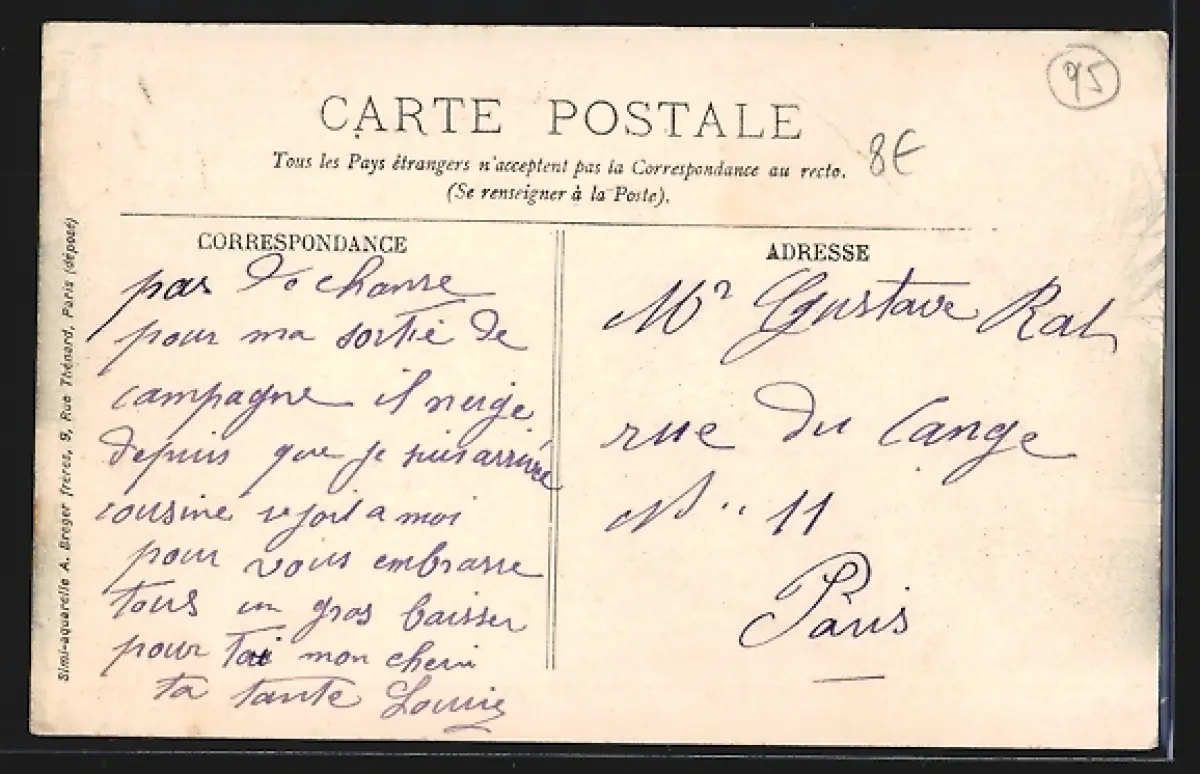 CARTE POSTALE
Tous les Pays étrangers n'acceptent pas la Correspondance au recto.
(Se renseigner à la Poste).
95
8€
CORRESPONDANCE
pas de chanse
pour ma sortie de
campagne il neige
depuis que je suis arrivée
cousine se joit a moi
pour vous embrasse
tous un gros baisser
pour toi mon cheri
ta tante Louise
ADRESSE
Mr Gustave Rat
rue du Cange
N.. 11
Paris
Simi-aquarelle A. Breger freres, 9, Rue Thénard, Paris (déposé)